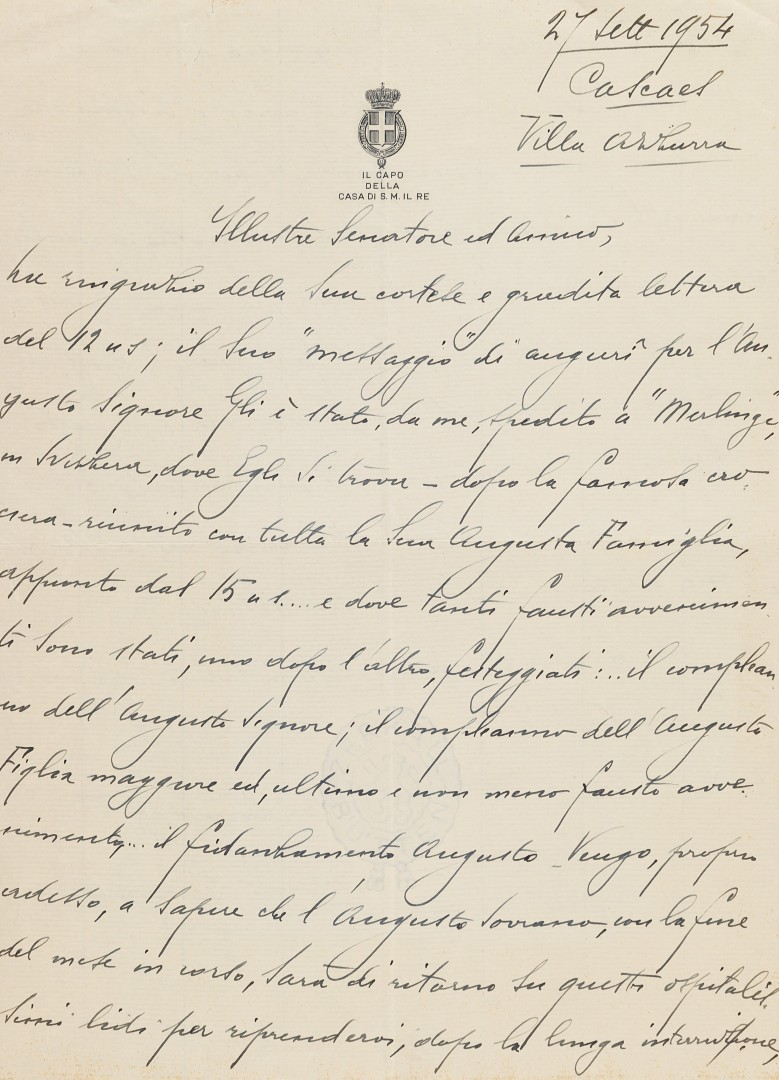 27 Sett 1954
Cascaes
Villa Azzurra
IL CAPO
DELLA
CASA DI S. M. IL RE
Illustre Senatore ed Amico,
La ringrazio della Sua cortese e gradita lettera
del 12 us; il Suo "messaggio" di auguri per l'Au-
gusto Signore Gli è stato, da me, spedito a "Merlinge",
in Svizzera, dove Egli si trova – dopo la famosa cro-
ciera – riunito con tutta la Sua Augusta Famiglia,
appunto dal 15 us.... e dove tanti fausti avvenimen-
ti sono stati, uno dopo l'altro, festeggiati:... il complean-
no dell'Augusto Signore; il compleanno dell'Augusta
Figlia maggiore ed, ultimo e non meno fausto avve-
nimento,... il fidanzamento Augusto – Vengo, proprio
adesso, a sapere che l'Augusto Sovrano, con la fine
del mese in corso, sarà di ritorno su questi ospitalis-
simi lidi per riprendervi, dopo la lunga interruzione,